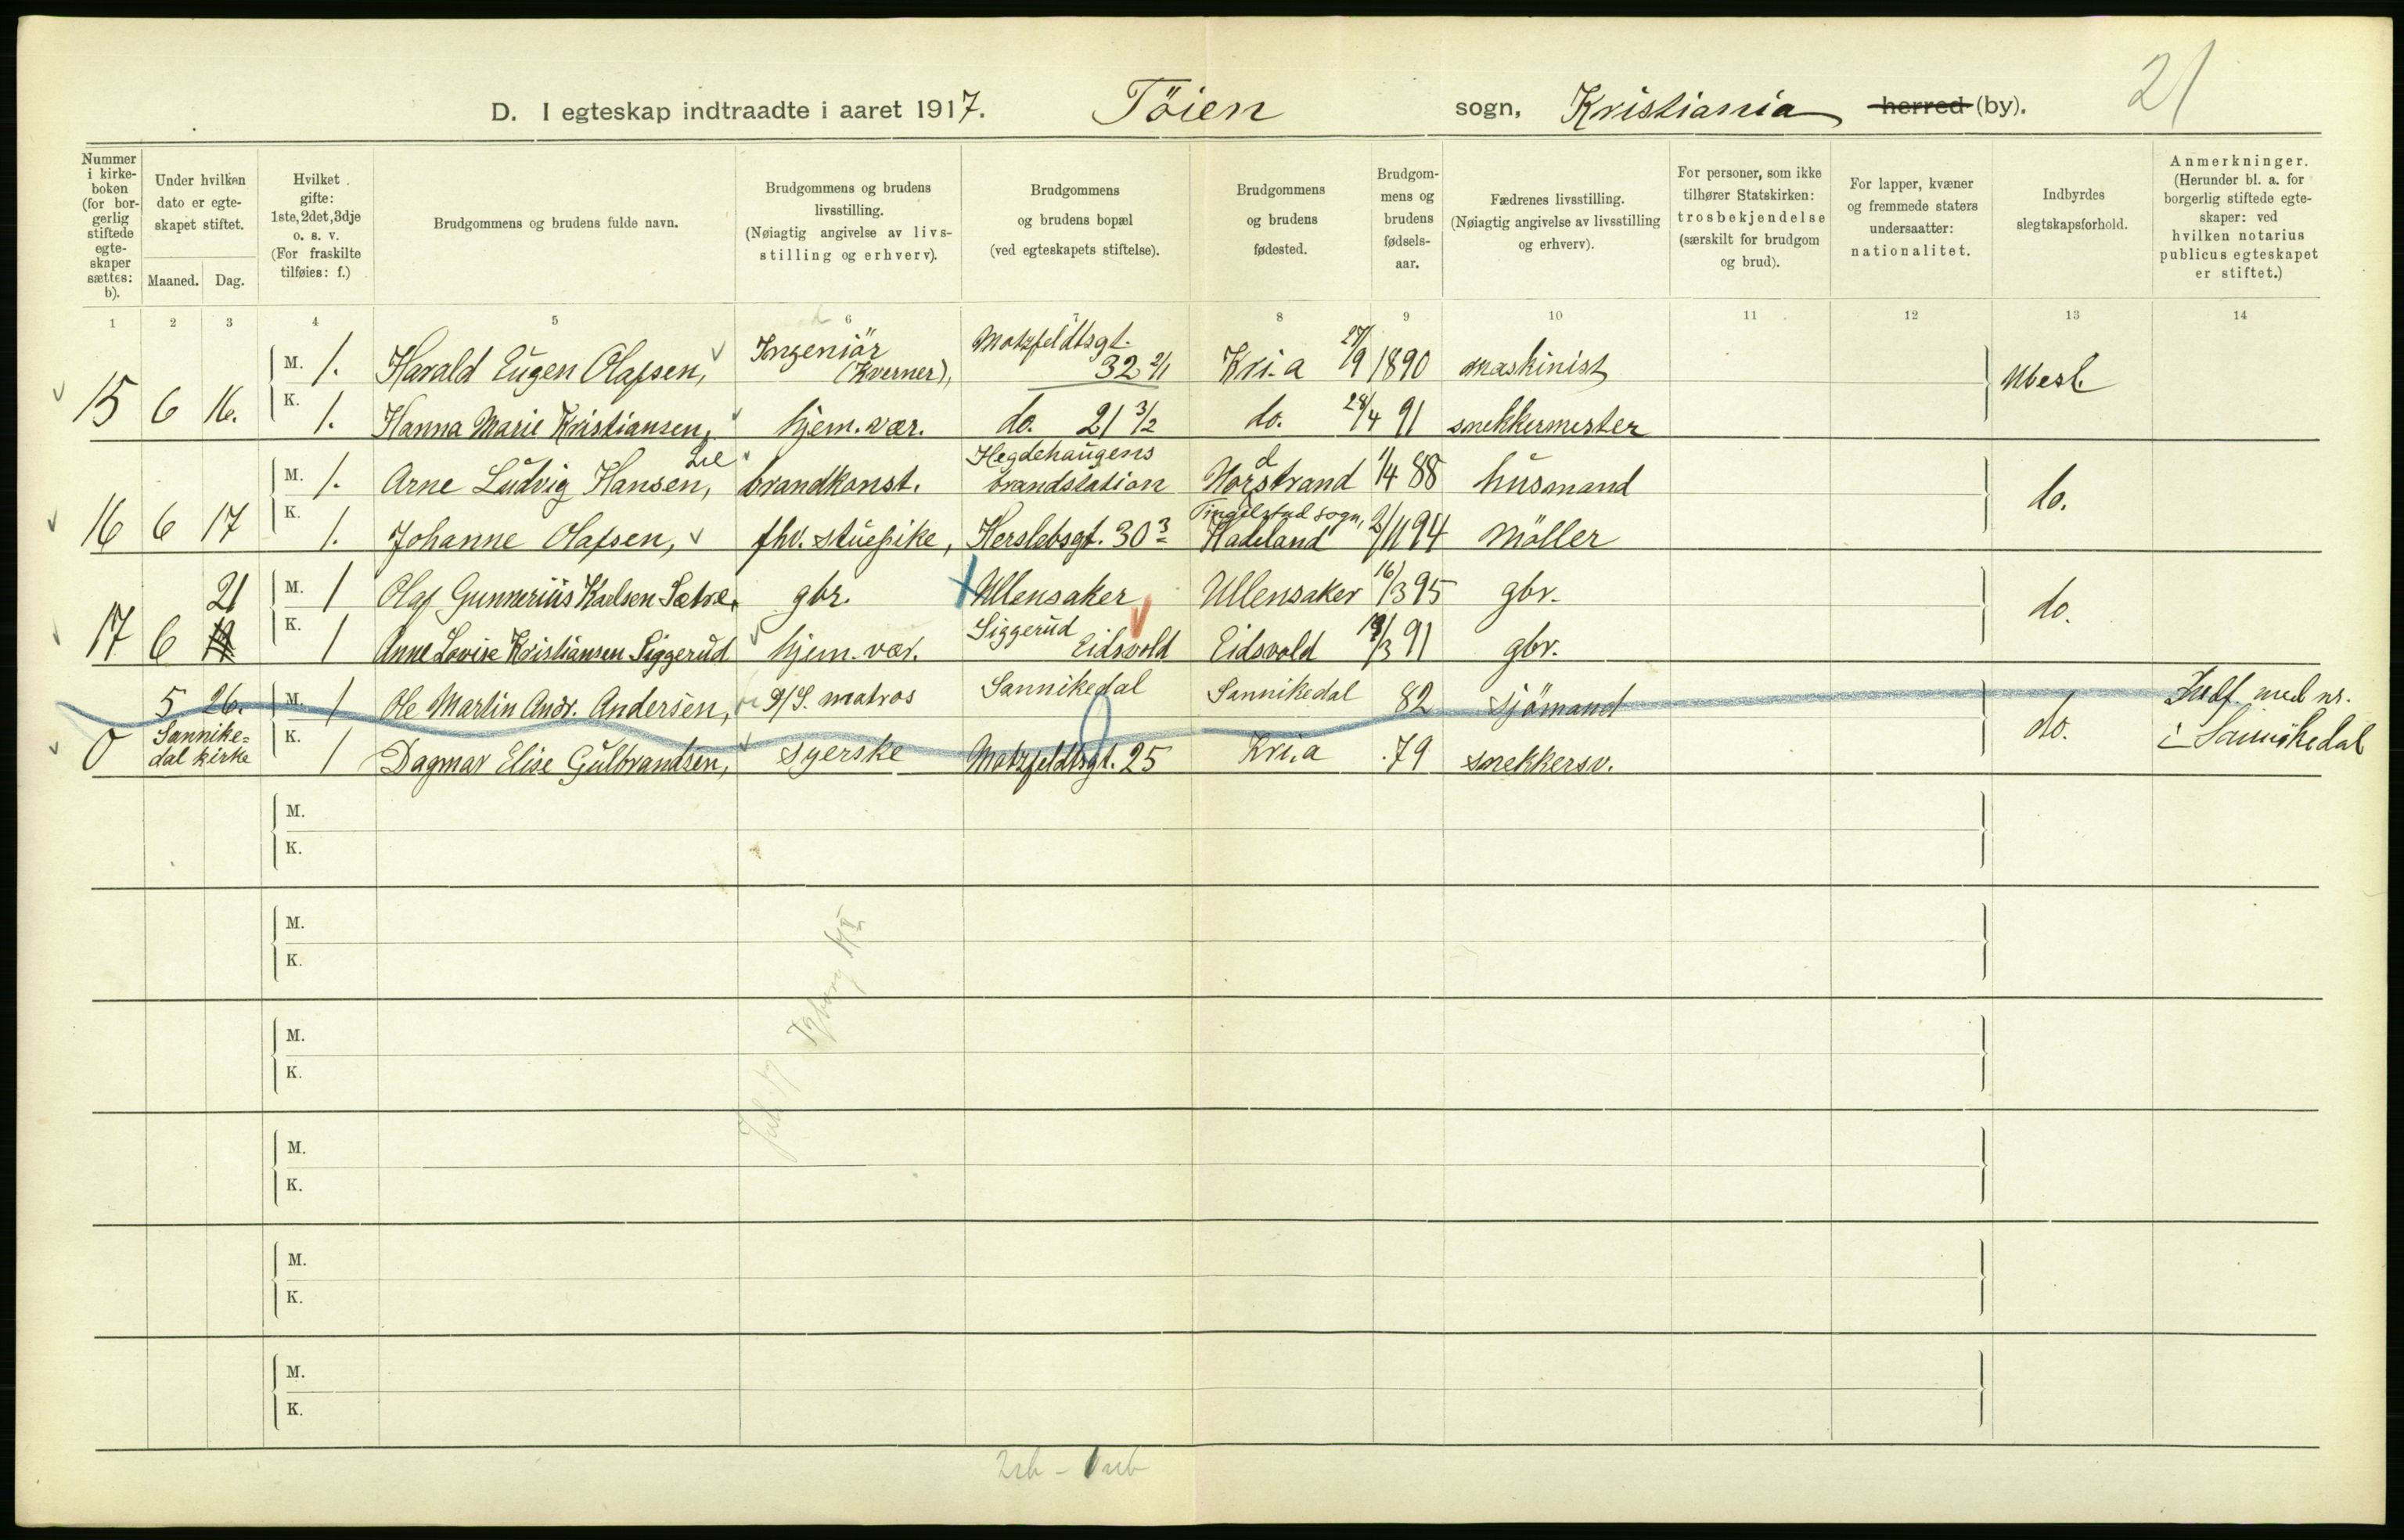 21
D. I egteskap indtraadte i aaret 1917. Töien sogn, Kristiania herred (by).
Nummer i kirke-boken (for bor-gerlig stiftede egte-skaper sættes: b).
Under hvilken dato er egte-skapet stiftet.
Maaned. Dag.
Hvilket gifte: 1ste, 2det, 3dje o. s. v. (For fraskilte tilføies: f.)
Brudgommens og brudens fulde navn.
Brudgommens og brudens livsstilling. (Nøiagtig angivelse av livs-stilling og erhverv).
Brudgommens og brudens bopæl (ved egteskapets stiftelse).
Brudgommens og brudens fødested.
Brudgom-mens og brudens fødsels-aar.
Fædrenes livsstilling. (Nøiagtig angivelse av livsstilling og erhverv).
For personer, som ikke tilhører Statskirken: trosbekjendelse (særskilt for brudgom og brud).
For lapper, kvæner og fremmede staters undersaatter: nationalitet.
Indbyrdes slegtskapsforhold.
Anmerkninger. (Herunder bl. a. for borgerlig stiftede egte-skaper: ved hvilken notarius publicus egteskapet er stiftet.)
1 2 3 4 5 6 7 8 9 10 11 12 13 14
15 6 16. M. 1. Harald Eugen Olafsen, Ingeniör (Kverner), Motzfeldtsgt. 32 2/1 Kri.a 27/9 1890 maskinist Ubesl.
K. 1. Hanna Marie Kristiansen, hjem. vær. do. 21 3/2 do. 28/4 91 snekkermester
16 6 17 M. 1. Arne Ludvig Hansen, Lie brandkonst. Hegdehaugens brandstation Nordstrand 1/4 88 husmand do.
K. 1. Johanne Olafsen, fhv. stuepike, Herslebsgt. 30 3 Tingelstad sogn, Hadeland 2/11 94 Möller
17 6 21 M. 1 Olaf Gunnerius Karlsen Sætre, gbr. Ullensaker Ullensaker 16/3 95 gbr. do.
K. 1 Anne Lovise Kristiansen Siggerud hjem. vær. Siggerud Eidsvold Eidsvold /3 91 gbr.
0 5 26. M. 1 Ole Martin Andr. Andersen, D/S. matros Sannikedal Sannikedal 82 sjömand do. Indf. med nr. i Sannikedal
Sannike=dal kirke K. 1 Dagmar Elise Gulbrandsen, syerske Motzfeldtsgt. 25 Kri.a 79 snekkersv.
M.
K.
M.
K.
M.
K.
M.
K.
M.
K.
M.
K.